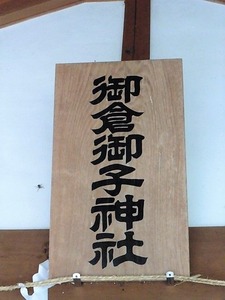 御倉御子神社